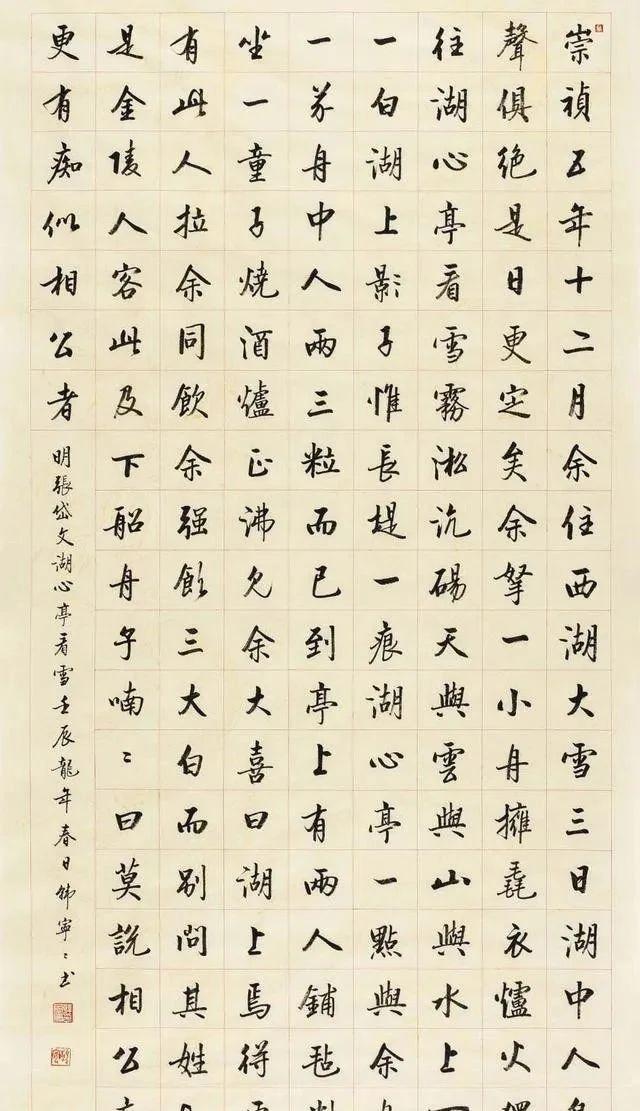 崇禎五年十二月余住西湖大雪三日湖中人
聲俱絕是日更定矣余拏一小舟擁毳衣爐火
往湖心亭看雪霧淞沆碭天與雲與山與水上
一白湖上影子惟長堤一痕湖心亭一點與余
一芥舟中人兩三粒而已到亭上有兩人鋪氈
坐一童子燒酒爐正沸見余大喜曰湖上焉得
有此人拉余同飲余强飲三大白而別問其姓
是金陵人客此及下船舟子喃〻曰莫說相公
更有痴似相公者
明張岱文湖心亭看雪壬辰龍年春日韓寧〻书